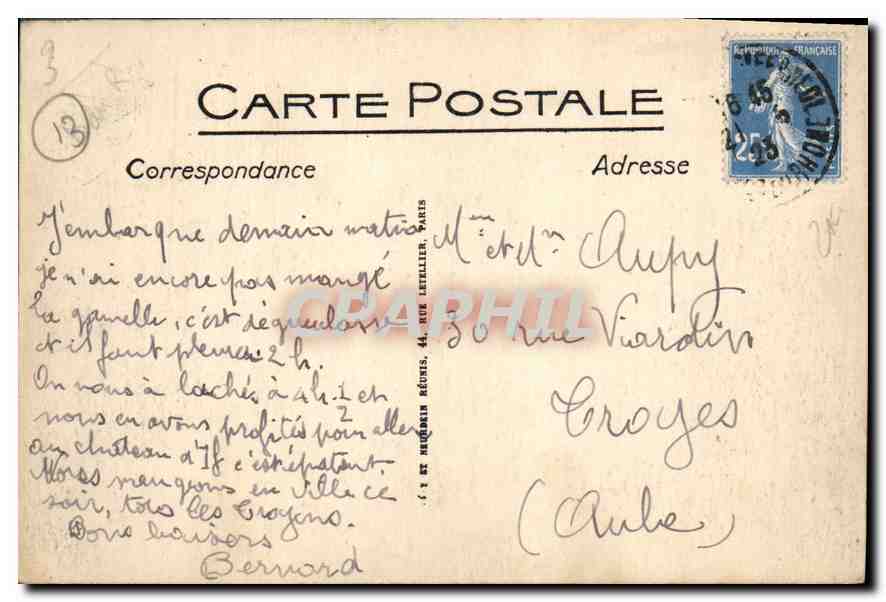 3
13
CARTE POSTALE
Correspondance
Adresse
REPUBLIQUE FRANÇAISE
25
J'embarque demain matin
je n'ai encore pas mangé
la gamelle, c'est dégueulasse
et il faut 2 h.
On nous à lachés à 4h 1/2 et
nous en avons profités pour aller
au château d'If c'est épatant.
Nous mangeons en ville ce
soir, tous les Troyens.
Bons baisers
Bernard
Y ET NEURDEIN RÉUNIS, 44, RUE LETELLIER, PARIS
Mme et Mr Aupy
30 rue Viardin
Troyes
(Aube)
CPAPHIL